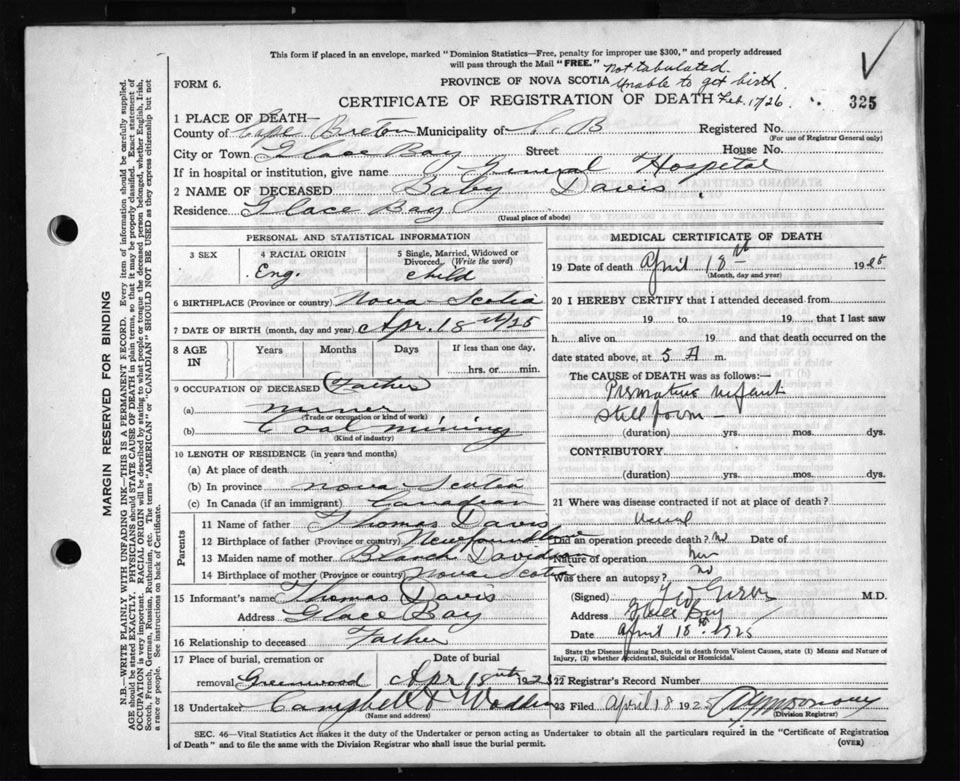 This form if placed in an envelope, marked "Dominion Statistics—Free, penalty for improper use $300," and properly addressed
will pass through the Mail "FREE."
Not tabulated.
FORM 6.
PROVINCE OF NOVA SCOTIA
Unable to get birth.
CERTIFICATE OF REGISTRATION OF DEATH
Feb. 17/26.
325
1 PLACE OF DEATH—
County of Cape Breton Municipality of C. B Registered No.
(For use of Registrar General only)
City or Town Glace Bay Street House No.
If in hospital or institution, give name General Hospital
2 NAME OF DECEASED Baby Davis
Residence Glace Bay
(Usual place of abode)
PERSONAL AND STATISTICAL INFORMATION
3 SEX
4 RACIAL ORIGIN
Eng.
5 Single, Married, Widowed or
Divorced, (Write the word)
child
6 BIRTHPLACE (Province or country) Nova Scotia
7 DATE OF BIRTH (month, day and year) Apr. 18th/25
8 AGE
IN
Years Months Days If less than one day,
hrs. or min.
9 OCCUPATION OF DECEASED (Father
(a) miner
(Trade or occupation or kind of work)
(b) Coal mining
(Kind of industry)
10 LENGTH OF RESIDENCE (in years and months)
(a) At place of death
(b) In province Nova Scotia
(c) In Canada (if an immigrant) Canadian
Parents
11 Name of father Thomas Davis
12 Birthplace of father (Province or country) Newfoundland
13 Maiden name of mother Blanch Davidson
14 Birthplace of mother (Province or country) Nova Scotia
15 Informant's name Thomas Davis
Address Glace Bay
16 Relationship to deceased Father
17 Place of burial, cremation or
removal Greenwood
Date of burial
Apr 18th 1925
18 Undertaker Campbell &
(Name and address)
MEDICAL CERTIFICATE OF DEATH
19 Date of death April 18th 1925
(Month, day and year)
20 I HEREBY CERTIFY that I attended deceased from
19 to 19 that I last saw
h alive on 19 and that death occurred on the
date stated above, at 5 A m.
The CAUSE of DEATH was as follows:—
Premature infant
Still born —
(duration) yrs. mos. dys.
CONTRIBUTORY
(duration) yrs. mos. dys.
21 Where was disease contracted if not at place of death?
Did an operation precede death? No Date of
Nature of operation
Was there an autopsy? No
(Signed) M.D.
Address Glace Bay
Date April 18th 1925
State the Disease causing Death, or in death from Violent Causes, state (1) Means and Nature of
Injury, (2) whether Accidental, Suicidal or Homicidal.
22 Registrar's Record Number
23 Filed April 18 1925
(Division Registrar)
SEC. 46—Vital Statistics Act makes it the duty of the Undertaker or person acting as Undertaker to obtain all the particulars required in the "Certificate of Registration
of Death" and to file the same with the Division Registrar who shall issue the burial permit.
(OVER)
MARGIN RESERVED FOR BINDING
N.B.—WRITE PLAINLY WITH UNFADING INK—THIS IS A PERMANENT RECORD. Every item of information should be carefully supplied.
AGE should be stated EXACTLY. PHYSICIANS should STATE CAUSE OF DEATH in plain terms, so that it may be properly classified. Exact statement of
OCCUPATION is very important. RACIAL ORIGIN will be described by stating to what people or tongue the deceased person belonged, whether English, Irish,
Scotch, French, German, Russian, Ruthenian, etc. The terms "AMERICAN" or "CANADIAN" SHOULD NOT BE USED as they express citizenship but not
a race or people. See instructions on back of Certificate.